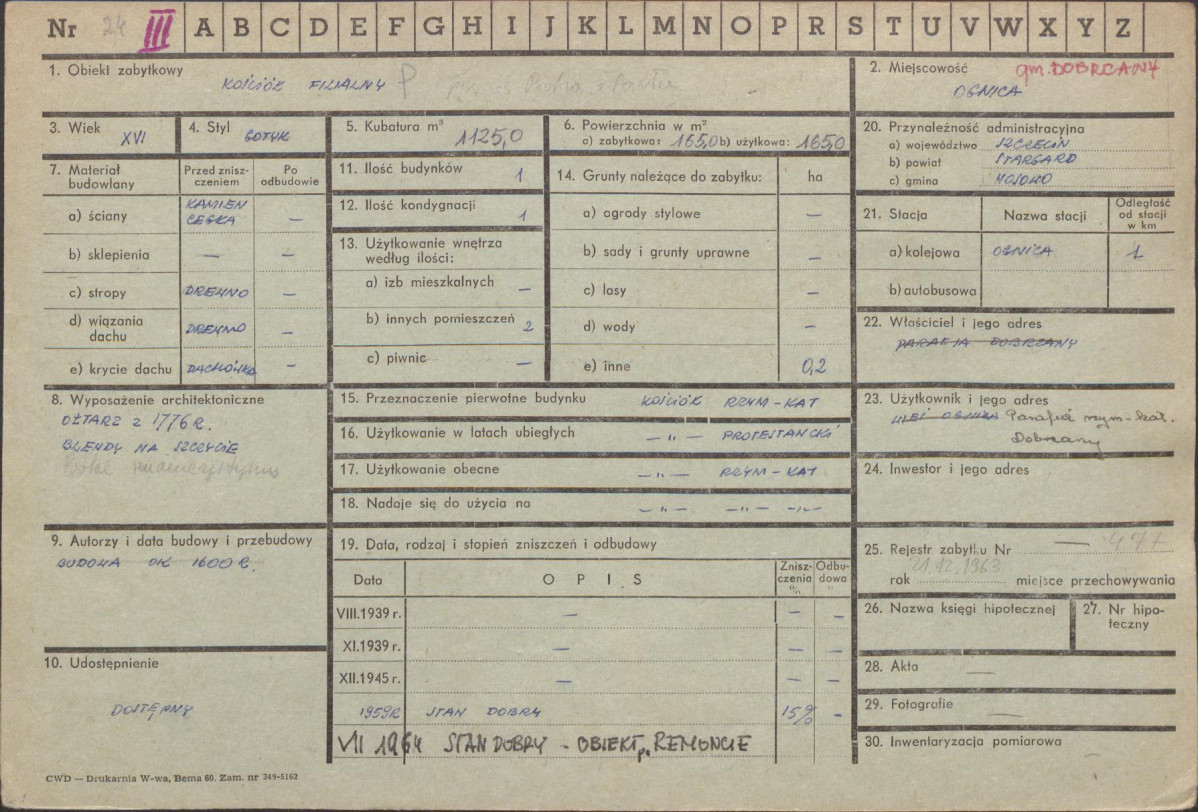 Nr 24 III A B C D E F G H I J K L M N O P R S T U V W X Y Z
1. Obiekt zabytkowy
KOŚCIÓŁ FILIALNY P
2. Miejscowość gm. DOBRZANY
OGNICA
3. Wiek XVI
4. Styl GOTYK
5. Kubatura m³ 1125,0
6. Powierzchnia w m²
a) zabytkowa: 165,0 b) użytkowa: 165,0
20. Przynależność administracyjna
a) województwo SZCZECIN
b) powiat STARGARD
c) gmina
7. Materiał budowlany
Przed zniszczeniem
Po odbudowie
a) ściany KAMIEŃ CEGŁA —
b) sklepienia — —
c) stropy DREWNO —
d) wiązania dachu DREWNO —
e) krycie dachu DACHÓWKA —
11. Ilość budynków 1
12. Ilość kondygnacji 1
13. Użytkowanie wnętrza
według ilości:
a) izb mieszkalnych —
b) innych pomieszczeń 2
c) piwnic —
14. Grunty należące do zabytku: ha
a) ogrody stylowe —
b) sady i grunty uprawne —
c) lasy —
d) wody —
e) inne 0,2
21. Stacja Nazwa stacji Odległość od stacji w km
a) kolejowa OGNICA 1
b) autobusowa
22. Właściciel i jego adres
PARAFIA DOBRZANY
8. Wyposażenie architektoniczne
OŁTARZ Z 1776 R.
BLENDY NA SZCZYCIE
15. Przeznaczenie pierwotne budynku KOŚCIÓŁ RZYM-KAT
16. Użytkowanie w latach ubiegłych — „ — PROTESTANCKI
17. Użytkowanie obecne — „ — RZYM-KAT
18. Nadaje się do użycia na — „ — — „ — — „ —
23. Użytkownik i jego adres
WIEŚ OGNICA Parafia rzym-kat.
Dobrzany
24. Inwestor i jego adres
9. Autorzy i data budowy i przebudowy
BUDOWA OK 1600 R.
19. Data, rodzaj i stopień zniszczeń i odbudowy
Data OPIS Zniszczenia % Odbudowa "
VIII.1939 r. — — —
XI.1939 r. — — —
XII.1945 r. — — —
1959R STAN DOBRY 15% —
VII 1964 STAN DOBRY - OBIEKT p. REMONCIE
25. Rejestr zabytku Nr — 477
21.12.1963
rok miejsce przechowywania
26. Nazwa księgi hipotecznej
27. Nr hipoteczny
10. Udostępnienie
DOSTĘPNY
28. Akta —
29. Fotografie —
30. Inwentaryzacja pomiarowa
CWD — Drukarnia W-wa, Bema 60. Zam. nr 349-5162